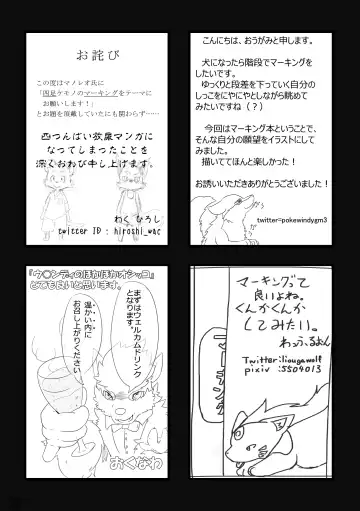 お詫び
この度はマノレオ氏に
「四足ケモノのマーキングをテーマに
お願いします！」
とお題を頂戴していたにも関わらず……
四つんばい放尿マンガに
なってしまったことを
深くおわび申し上げます。
わく ひろし
twitter ID : hiroshi_wac
こんにちは、おうがみと申します。
犬になったら階段でマーキングを
したいです。
ゆっくりと段差を下っていく自分の
しっこをにやにやとしながら眺めて
みたいですね（？）
今回はマーキング本ということで、
そんな自分の願望をイラストにして
みました。
描いててほんと楽しかった！
お誘いいただきありがとうございました！
twitter=pokewindygm3
『ウ〇ンディのほかほかオシッコ』
とても良いと思います。
まずはウェルカムドリンク
となります。
温かい内に
お召し上がりください
おくなわ
マーキングって
良いよね。
くんかくんか
してみたい。
わっふるおん
Twitter:liougawolf
pixiv :5504013